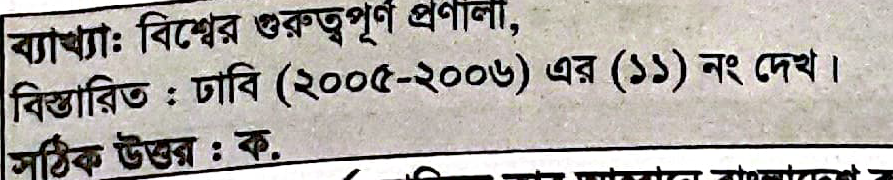 ব্যাখ্যা: বিশ্বের গুরুত্বপূর্ণ প্রণালী,
বিস্তারিত : ঢাবি (২০০৫-২০০৬) এর (১১) নং দেখ।
সঠিক উত্তর : ক.